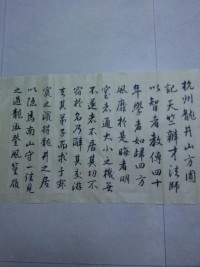 杭州龍井山方圓
記天竺辯才法師
以智者教傳四十
年學者如歸四方
風靡於是晦者明
窒者通大小之機無
不遂者不居其功不
宿於名乃辭其交游
去其弟子而求于寂
寞之濱得龍井之居
以隱焉南山守一往見
之過龍泓登風篁嶺